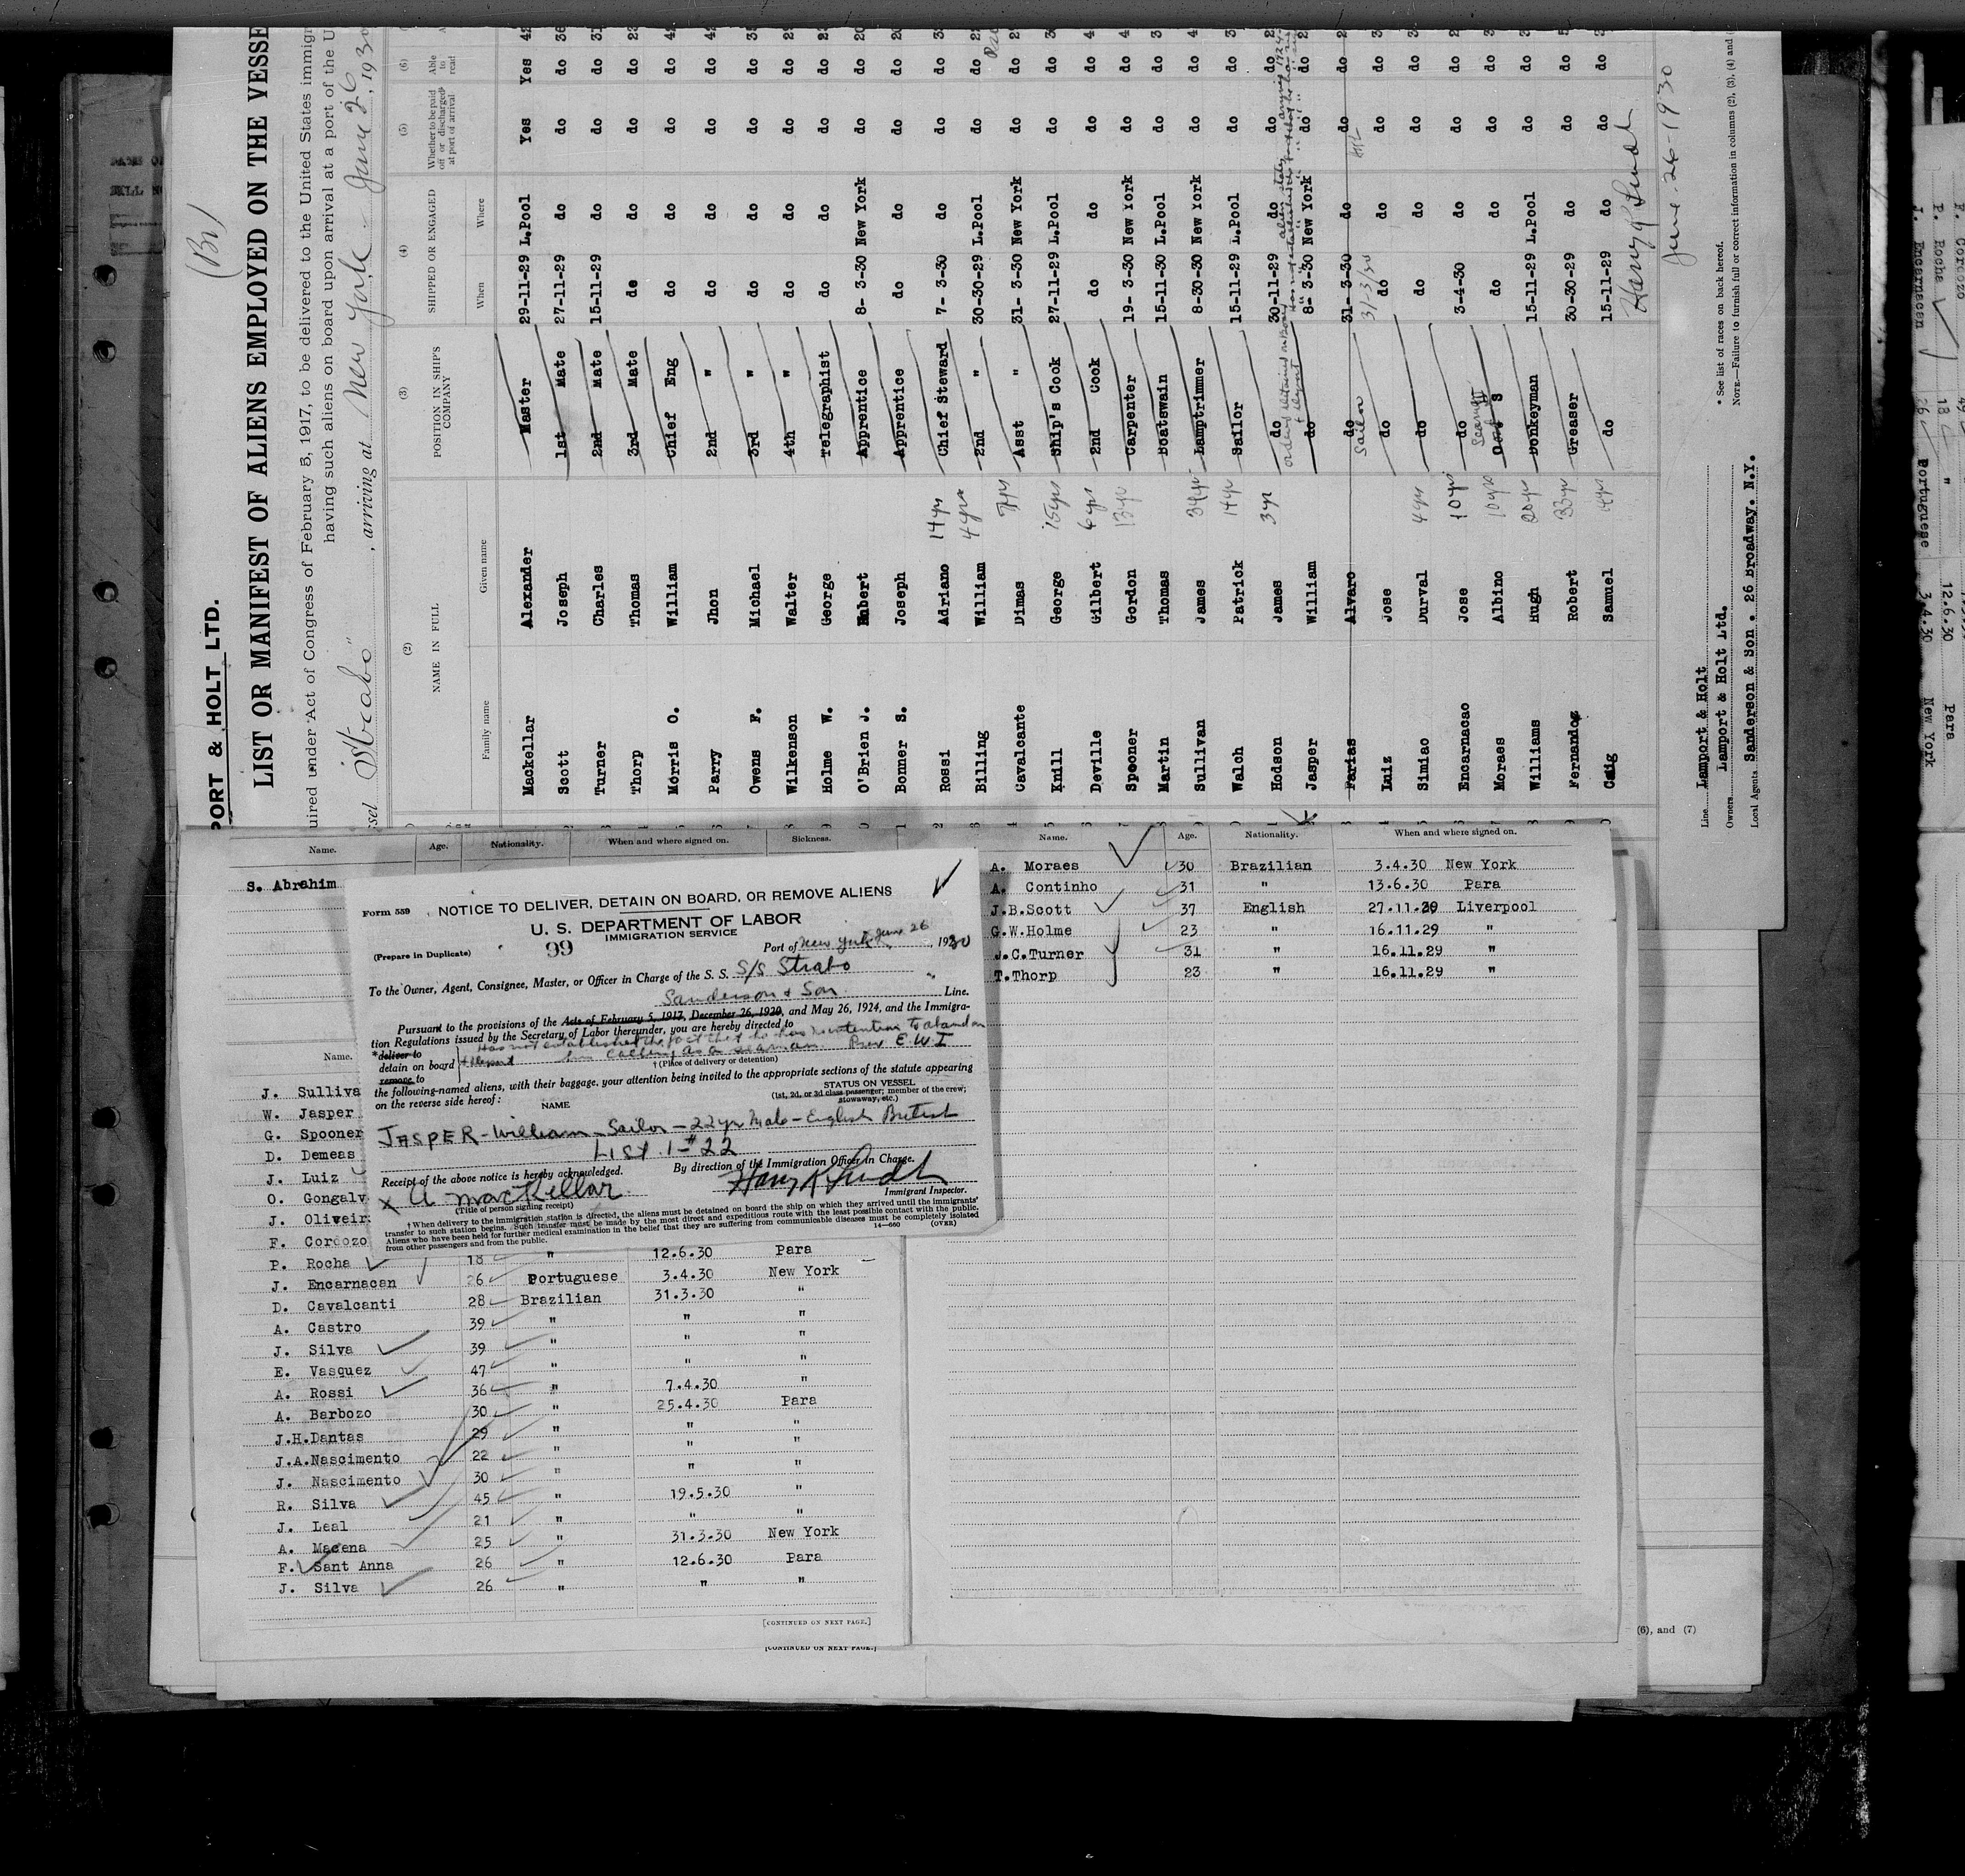 PORT & HOLT LTD.
(Br)
LIST OR MANIFEST OF ALIENS EMPLOYED ON THE VESSE
uired under Act of Congress of February 5, 1917, to be delivered to the United States immigr
having such aliens on board upon arrival at a port of the U
sel "Strabo", arriving at New York June 26, 1930
(2) (3) (4) (5) (6)
NAME IN FULL POSITION IN SHIP'S COMPANY SHIPPED OR ENGAGED Whether to be paid off or discharged at port of arrival Able to read
Family name Given name When Where
Mackellar Alexander Master 29-11-29 L.Pool Yes Yes 42
Scott Joseph 1st Mate 27-11-29 do do do 36
Turner Charles 2nd Mate 15-11-29 do do do 31
Thorp Thomas 3rd Mate do do do do 23
Morris O. William Chief Eng do do do do 42
Parry Jhon 2nd " do do do do 42
Owens F. Michael 3rd " do do do do 35
Wilkenson Walter 4th " do do do do
Holme W. George Telegraphist do do do do
O'Brien J. Hubert Apprentice 8- 3-30 New York do do 20
Bonner S. Joseph Apprentice do do do do 20
Rossi Adriano 14 yrs Chief Steward 7- 3-30 do do do
Billing William 4 yrs 2nd " 30-30-29 L.Pool do do
Cavalcante Dimas 7 yrs Asst " 31- 3-30 New York do do
Knill George 15 yrs Ship's Cook 27-11-29 L.Pool do do
Deville Gilbert 6 yrs 2nd Cook do do do do
Spooner Gordon 13 yr Carpenter 19- 3-30 New York do do
Martin Thomas Boatswain 15-11-30 L.Pool do do
Sullivan James 34 yr Lamptrimmer 8-30-30 New York do do
Walch Patrick 14 yr Sailor 15-11-29 L.Pool do do
Hodson James 3 yr do 30-11-29 do do do
Jasper William do 8- 3-30 New York do do
Farias Alvaro do 31- 3-30 do do do
Luiz Jose Sailor do 31-3/30 do do do do
Simiao Durval 4 yrs do do do do do
Encarnacao Jose 10 yrs do 3-4-30 do do do
Moraes Albino 10 yrs Seaman S do do do do
Williams Hugh 20 yrs Donkeyman 15-11-29 L.Pool do do
Fernandoz Robert 33 yr Greaser 30-30-29 do do do
Caig Samuel 14 yrs do 15-11-29 do do do
Line Lamport & Holt
Owners Lamport & Holt Ltd.
Local Agents Sanderson & Son . 26 Broadway. N.Y.
* See list of races on back hereof.
NOTE.—Failure to furnish full or correct information in columns (2), (3), (4) and (
June-26-1930
Name. Age. Nationality. When and where signed on. Sickness.
S. Abrahim
Form 559
NOTICE TO DELIVER, DETAIN ON BOARD, OR REMOVE ALIENS
U. S. DEPARTMENT OF LABOR
IMMIGRATION SERVICE
99
(Prepare in Duplicate)
Port of New York June 26, 1930
To the Owner, Agent, Consignee, Master, or Officer in Charge of the S. S. S/S Strabo
Sanderson & Son Line.
Pursuant to the provisions of the Acts of February 5, 1917, December 26, 1920, and May 26, 1924, and the Immigra-
tion Regulations issued by the Secretary of Labor thereunder, you are hereby directed to
Has not established the fact that he has no intention to abandon
*deliver to
detain on board & deport his calling as a seaman. E.W.I
remove to
†(Place of delivery or detention)
the following-named aliens, with their baggage, your attention being invited to the appropriate sections of the statute appearing
on the reverse side hereof:
NAME
STATUS ON VESSEL
(1st, 2d, or 3d class passenger; member of the crew;
stowaway, etc.)
JASPER - William - Sailor - 22 yr Male - English British
LIST 1 - #22
Receipt of the above notice is hereby acknowledged.
By direction of the Immigration Officer in Charge.
x A MacKellar
(Title of person signing receipt)
Immigrant Inspector.
†When delivery to the immigration station is directed, the aliens must be detained on board the ship on which they arrived until the immigrants'
transfer to such station begins. Such transfer must be made by the most direct and expeditious route with the least possible contact with the public.
Aliens who have been held for further medical examination in the belief that they are suffering from communicable diseases must be completely isolated
from other passengers and from the public.
14—660 (OVER)
Name.
J. Sulliva
W. Jasper
G. Spooner
D. Demeas
J. Luiz
O. Gongalv
J. Oliveir
F. Cordozo
P. Rocha 18 " 12.6.30 Para
J. Encarnacan 26 Portuguese 3.4.30 New York
D. Cavalcanti 28 Brazilian 31.3.30 "
A. Castro 39 " " "
J. Silva 39 " " "
E. Vasquez 47 " " "
A. Rossi 36 " 7.4.30 "
A. Barbozo 30 " 25.4.30 Para
J.H.Dantas 29 " " "
J.A.Nascimento 22 " " "
J. Nascimento 30 " " "
R. Silva 45 " 19.5.30 "
J. Leal 21 " " "
A. Macena 25 " 31.3.30 New York
F. Sant Anna 26 " 12.6.30 Para
J. Silva 26 " " "
[CONTINUED ON NEXT PAGE.]
[CONTINUED ON NEXT PAGE.]
Name. Age. Nationality. When and where signed on.
A. Moraes 30 Brazilian 3.4.30 New York
A. Continho 31 " 13.6.30 Para
J.B.Scott 37 English 27.11.29 Liverpool
G.W.Holme 23 " 16.11.29 "
J.C.Turner 31 " 16.11.29 "
T.Thorp 23 " 16.11.29 "
(6), and (7)
F. Corozo
P. Rocha 18 " 12.6.30 Para
J. Encarnacen 26 Portuguese 3.4.30 New York